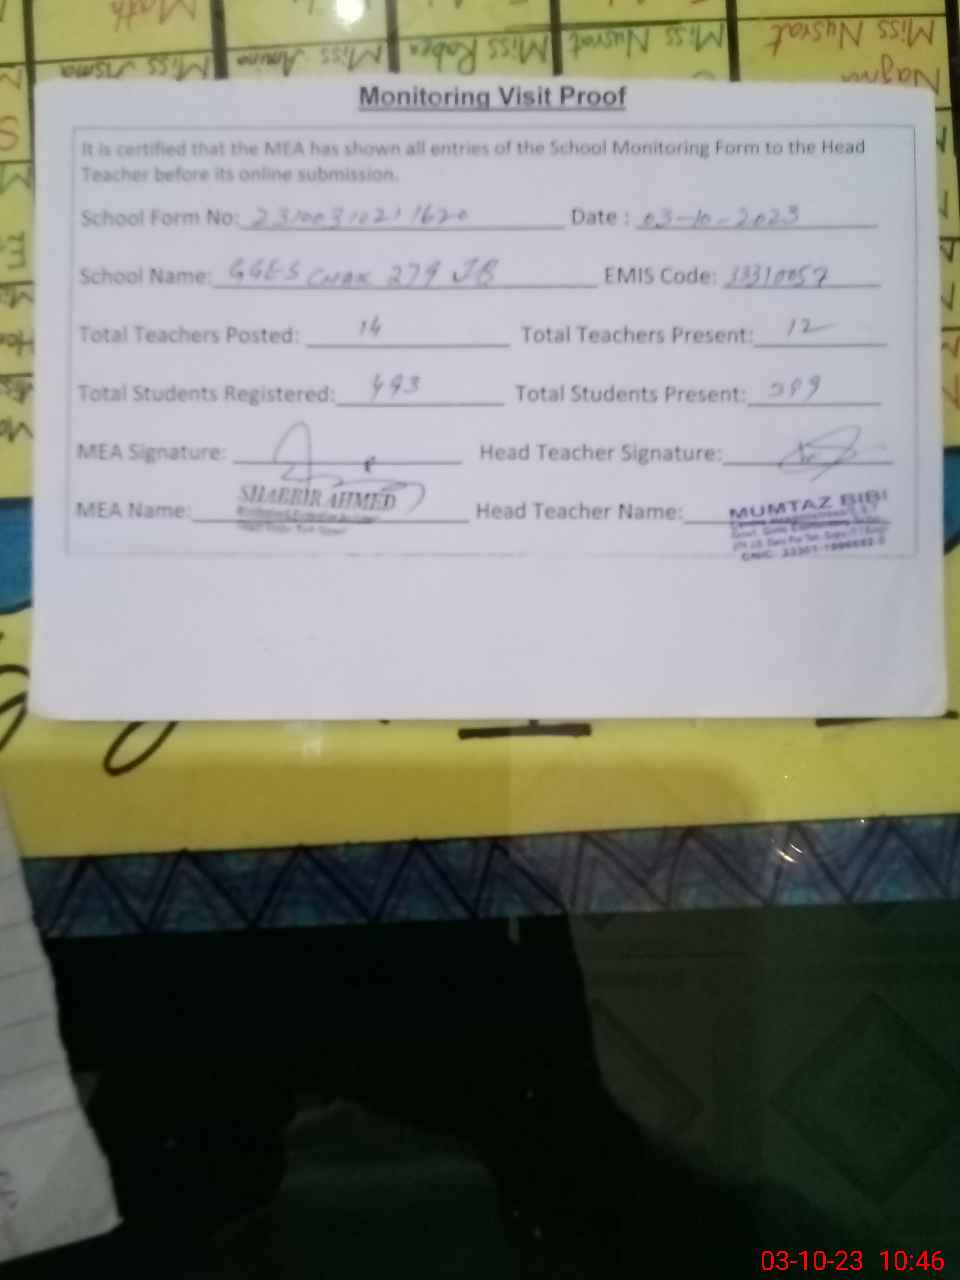 Math
Miss Asma Miss Amina Miss Rabea Miss Nusrat Miss Nusrat
Nagma
Monitoring Visit Proof
It is certified that the MEA has shown all entries of the School Monitoring Form to the Head
Teacher before its online submission.
School Form No: 23100310211620 Date : 03-10-2023
School Name: GGES CHAK 279 JB EMIS Code: 33310057
Total Teachers Posted: 14 Total Teachers Present: 12
Total Students Registered: 493 Total Students Present: 399
MEA Signature: Head Teacher Signature:
MEA Name: SHABBIR AHMED Head Teacher Name: MUMTAZ BIBI
03-10-23 10:46